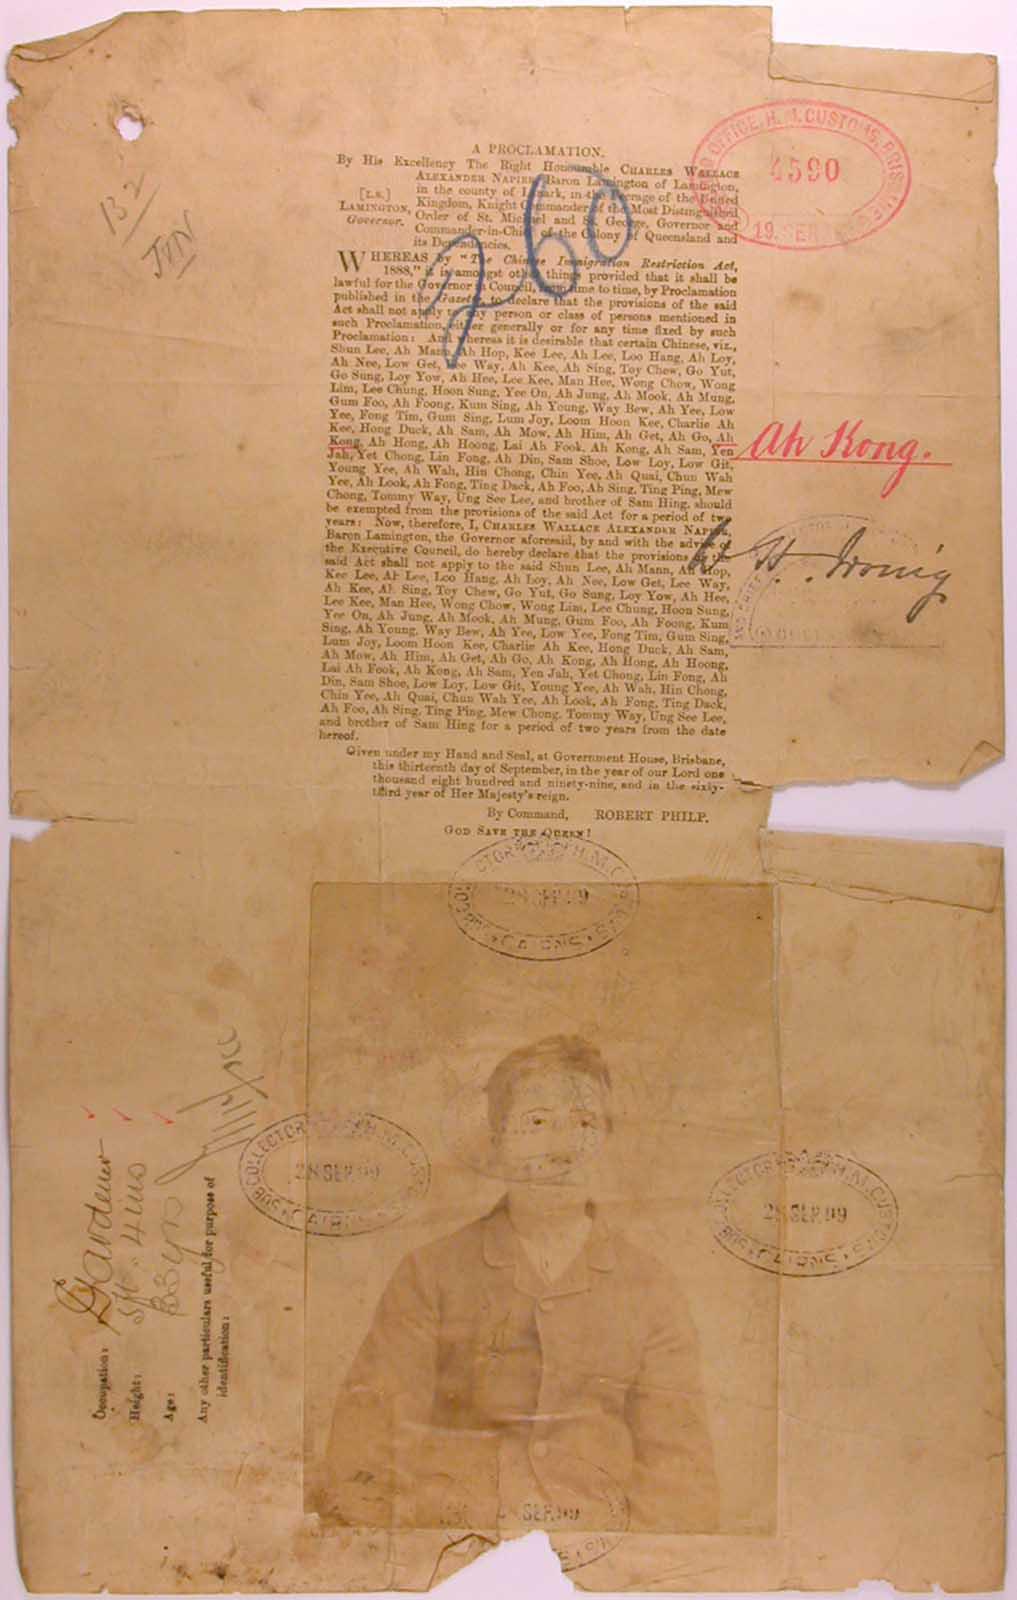 132
A PROCLAMATION.
By His Excellency The Right Honourable CHARLES WALLACE
ALEXANDER NAPIER, Baron Lamington of Lamington,
[L.S.] in the county of Lanark, in the Peerage of the United
LAMINGTON, Kingdom, Knight Commander of the Most Distinguished
Governor. Order of St. Michael and St. George, Governor and
Commander-in-Chief of the Colony of Queensland and
its Dependencies.
WHEREAS by "The Chinese Immigration Restriction Act,
1888," it is amongst other things provided that it shall be
lawful for the Governor in Council, from time to time, by Proclamation
published in the Gazette, to declare that the provisions of the said
Act shall not apply to any person or class of persons mentioned in
such Proclamation, either generally or for any time fixed by such
Proclamation: And whereas it is desirable that certain Chinese, viz.,
Shun Lee, Ah Mann, Ah Hop, Kee Lee, Ah Lee, Loo Hang, Ah Loy,
Ah Nee, Low Get, Lee Way, Ah Kee, Ah Sing, Toy Chew, Go Yut,
Go Sung, Loy Yow, Ah Hee, Lee Kee, Man Hee, Wong Chow, Wong
Lim, Lee Chung, Hoon Sung, Yee On, Ah Jung, Ah Mook, Ah Mung,
Gum Foo, Ah Foong, Kum Sing, Ah Young, Way Bew, Ah Yee, Low
Yee, Fong Tim, Gum Sing, Lum Joy, Loom Hoon Kee, Charlie Ah
Kee, Hong Duck, Ah Sam, Ah Mow, Ah Him, Ah Get, Ah Go, Ah
Kong, Ah Hong, Ah Hoong, Lai Ah Fook, Ah Kong, Ah Sam, Yen
Jah, Yet Chong, Lin Fong, Ah Din, Sam Shoe, Low Loy, Low Git,
Young Yee, Ah Wah, Hin Chong, Chin Yee, Ah Quai, Chun Wah
Yee, Ah Look, Ah Fong, Ting Dack, Ah Foo, Ah Sing, Ting Ping, Mew
Chong, Tommy Way, Ung See Lee, and brother of Sam Hing, should
be exempted from the provisions of the said Act for a period of two
years: Now, therefore, I, CHARLES WALLACE ALEXANDER NAPIER,
Baron Lamington, the Governor aforesaid, by and with the advice of
the Executive Council, do hereby declare that the provisions of the
said Act shall not apply to the said Shun Lee, Ah Mann, Ah Hop,
Kee Lee, Ah Lee, Loo Hang, Ah Loy, Ah Nee, Low Get, Lee Way,
Ah Kee, Ah Sing, Toy Chew, Go Yut, Go Sung, Loy Yow, Ah Hee,
Lee Kee, Man Hee, Wong Chow, Wong Lim, Lee Chung, Hoon Sung,
Yee On, Ah Jung, Ah Mook, Ah Mung, Gum Foo, Ah Foong, Kum
Sing, Ah Young, Way Bew, Ah Yee, Low Yee, Fong Tim, Gum Sing,
Lum Joy, Loom Hoon Kee, Charlie Ah Kee, Hong Duck, Ah Sam,
Ah Mow, Ah Him, Ah Get, Ah Go, Ah Kong, Ah Hong, Ah Hoong,
Lai Ah Fook, Ah Kong, Ah Sam, Yen Jah, Yet Chong, Lin Fong, Ah
Din, Sam Shoe, Low Loy, Low Git, Young Yee, Ah Wah, Hin Chong,
Chin Yee, Ah Quai, Chun Wah Yee, Ah Look, Ah Fong, Ting Dack,
Ah Foo, Ah Sing, Ting Ping, Mew Chong, Tommy Way, Ung See Lee,
and brother of Sam Hing for a period of two years from the date
hereof.
Given under my Hand and Seal, at Government House, Brisbane,
this thirteenth day of September, in the year of our Lord one
thousand eight hundred and ninety-nine, and in the sixty-
third year of Her Majesty's reign.
By Command, ROBERT PHILP.
GOD SAVE THE QUEEN!
260
OFFICE, H.M. CUSTOMS, BRISBANE
4590
19. SEP
Ah Kong.
W. H. Irving
SUB COLLECTOR OF H.M. CUSTOMS CAIRNS
28 SEP. 99
SUB COLLECTOR OF H.M. CUSTOMS CAIRNS
28 SEP. 99
SUB COLLECTOR OF H.M. CUSTOMS CAIRNS
28 SEP. 99
SEP. 99
Occupation: Gardener
Height: 5ft. 4ins
Age: 33 yrs
Any other particulars useful for purpose of
identification: